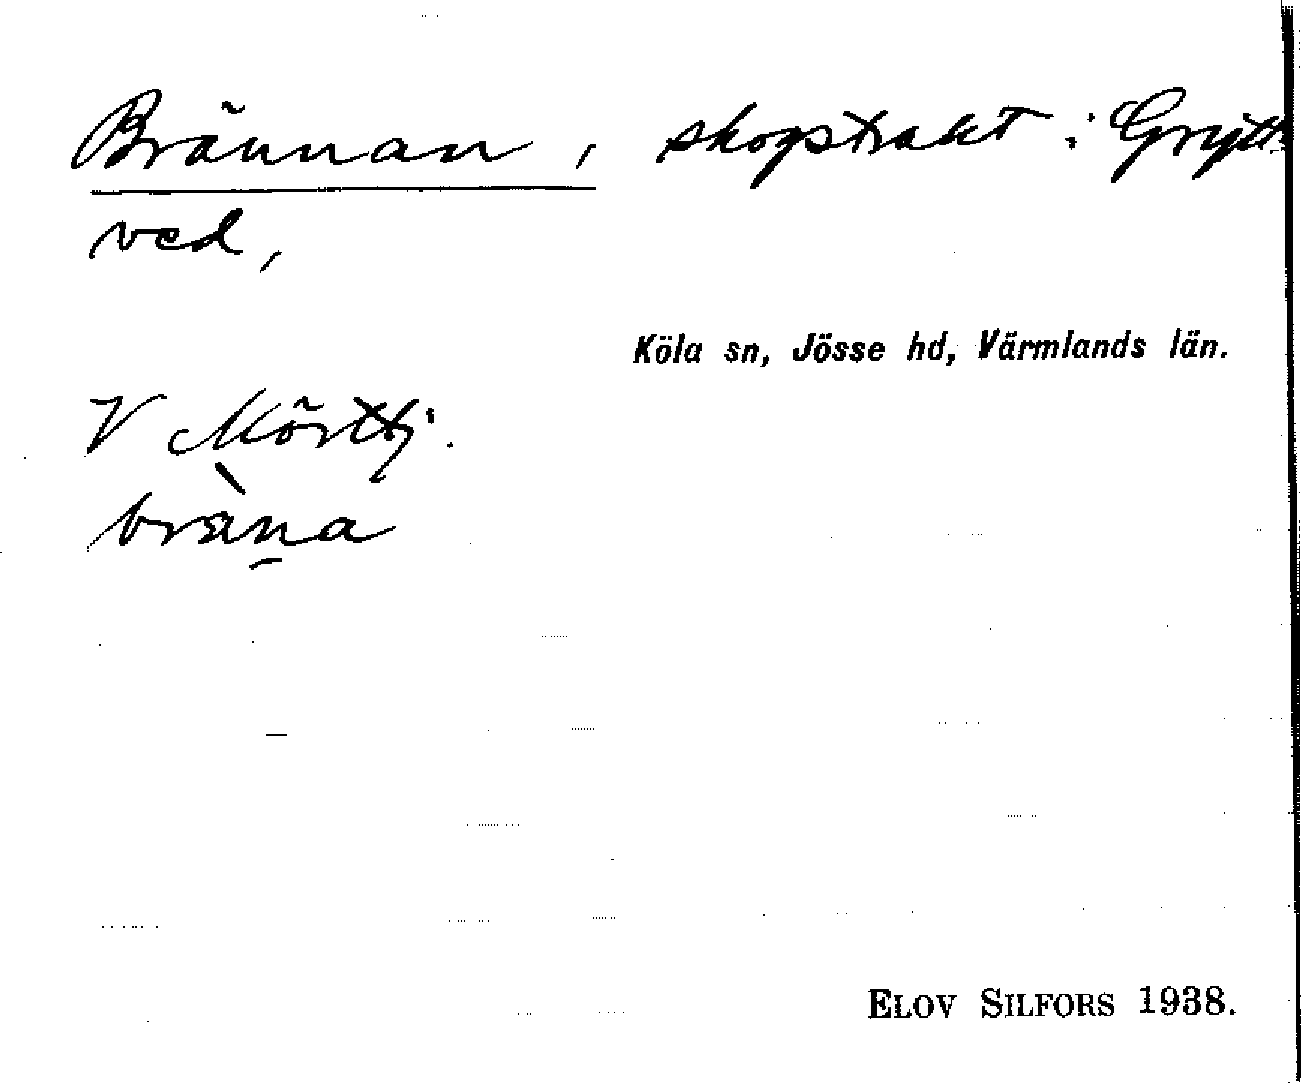 Brännan, skogstrakt i Grytt
ved,
Köla sn, Jösse hd, Värmlands län.
V Mörttj.
bràna
ELOV SILFORS 1938.